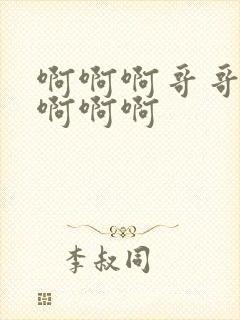 啊啊啊哥哥
啊啊啊
李叔同